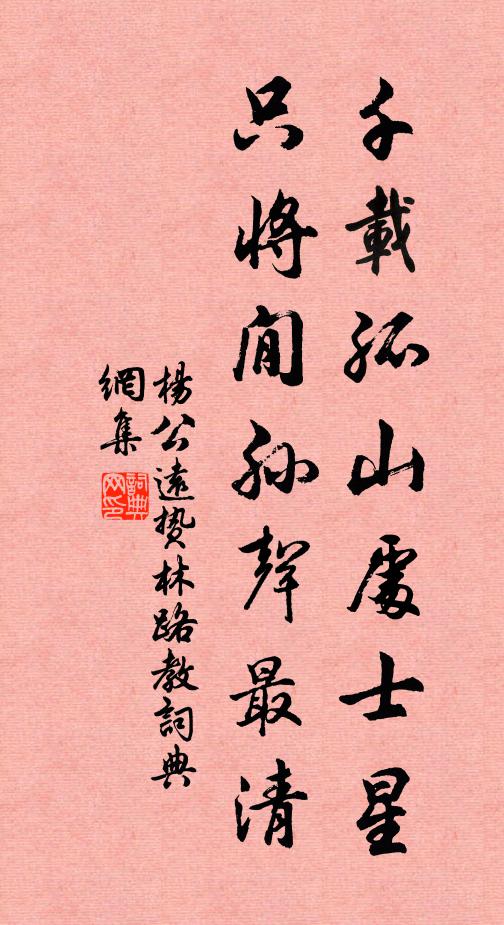 千載孤山處士星
只將聞孫聲最清
楊公遠贄林路教詞典
網集
詞典
网印